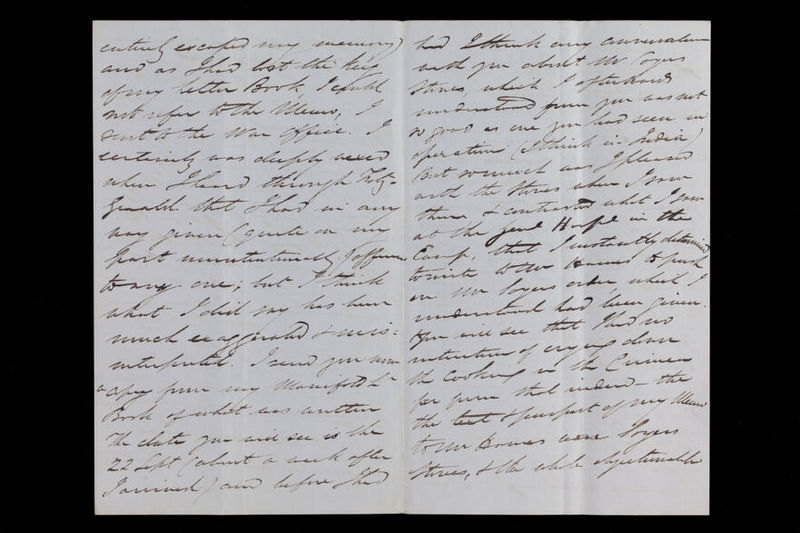 entirely escaped my memory)
and as I had lost the key
of my letter Book, I could
not refer to the Memo, I
sent to the War Office. I
certainly was deeply vexed
when I heard through Fitz-
Gerald that I had in any
way given (quite on my
part unintentionally) offence
to any one; but I think
what I did say has been
much exaggerated & mis=
interpreted. I send you now
a copy from my Manifold Lr
Book of what was written
The date you will see is the
22 Sept (about a week after
I arrived) and before I had
had I think any conversation
with you about Mr Soyers
Stoves, which I afterwards
understood from you was not
so good as one you had seen in
operation (I think in India)
But so much was I pleased
with the Stoves when I saw
them, & contrasted what I saw
at the Genl Hospl in the
Camp, that I instantly determined
to write to Mr to push
on Mr Soyers order which I
understood had been given.
You will see that I had no
intention of crying down
the Cooking in the Crimea
far from that indeed - the
the text & purport of my Memo
to Mr were Soyers
Stoves, & the whole